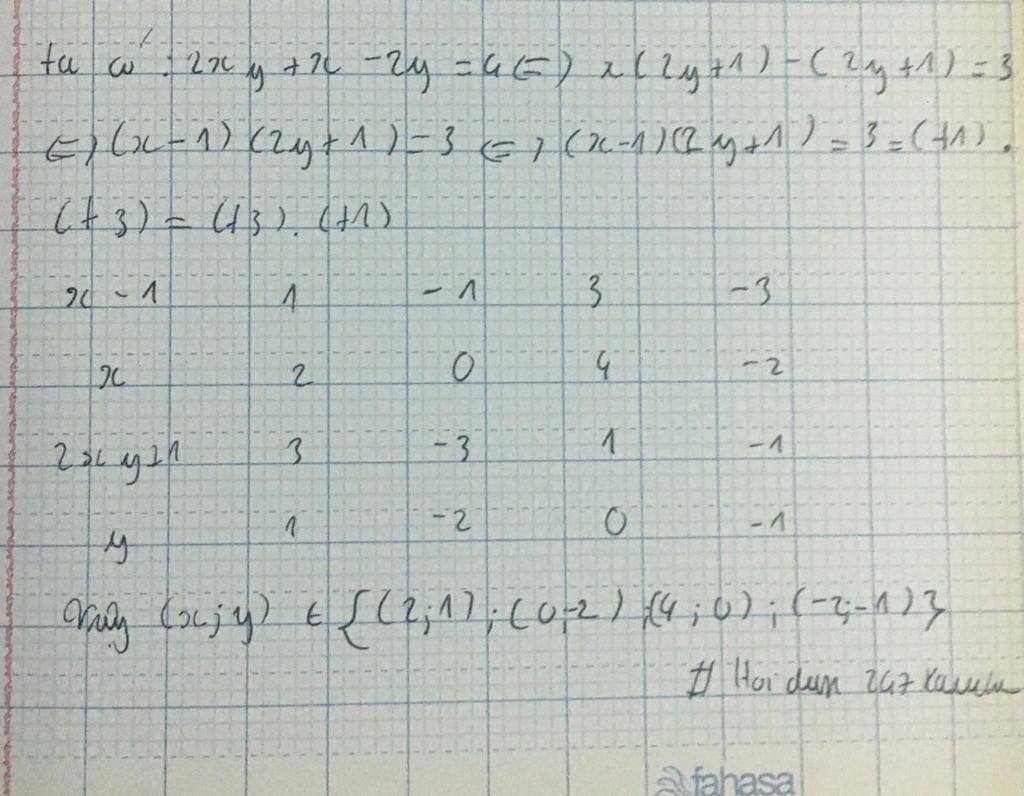 ta có: 2xy + x - 2y = 4 <=> x(2y+1) - (2y+1) = 3
<=> (x-1)(2y+1) = 3 <=> (x-1)(2y+1) = 3 = (+1).
(+3) = (+3).(+1)
x - 1 1 -1 3 -3
x 2 0 4 -2
2xy+1 3 -3 1 -1
y 1 -2 0 -1
Vậy (x;y) ∈ {(2;1);(0;-2);(4;0);(-2;-1)}
# Hoidan 247
fahasa